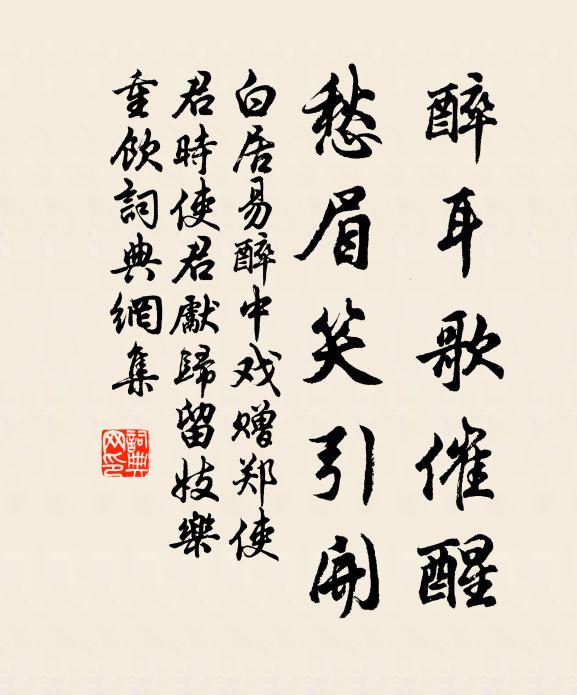 醉耳歌催醒
愁眉笑引開
白居易醉中戏赠郑使
君時使君處歸留妓樂
重飲詞典網集
詞典網印